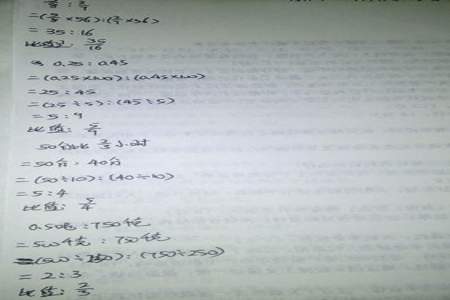 =(5/8×56):(2/7×56)
=35:16
比值: 35/16
0.25:0.45
=(0.25×100):(0.45×100)
=25:45
=(25÷5):(45÷5)
=5:9
比值: 5/9
50分比2/3小时
=50分:40分
=(50÷10):(40÷10)
=5:4
比值: 5/4
0.50吨:750千克
=500千克:750千克
=(500÷250):(750÷250)
=2:3
比值: 2/3